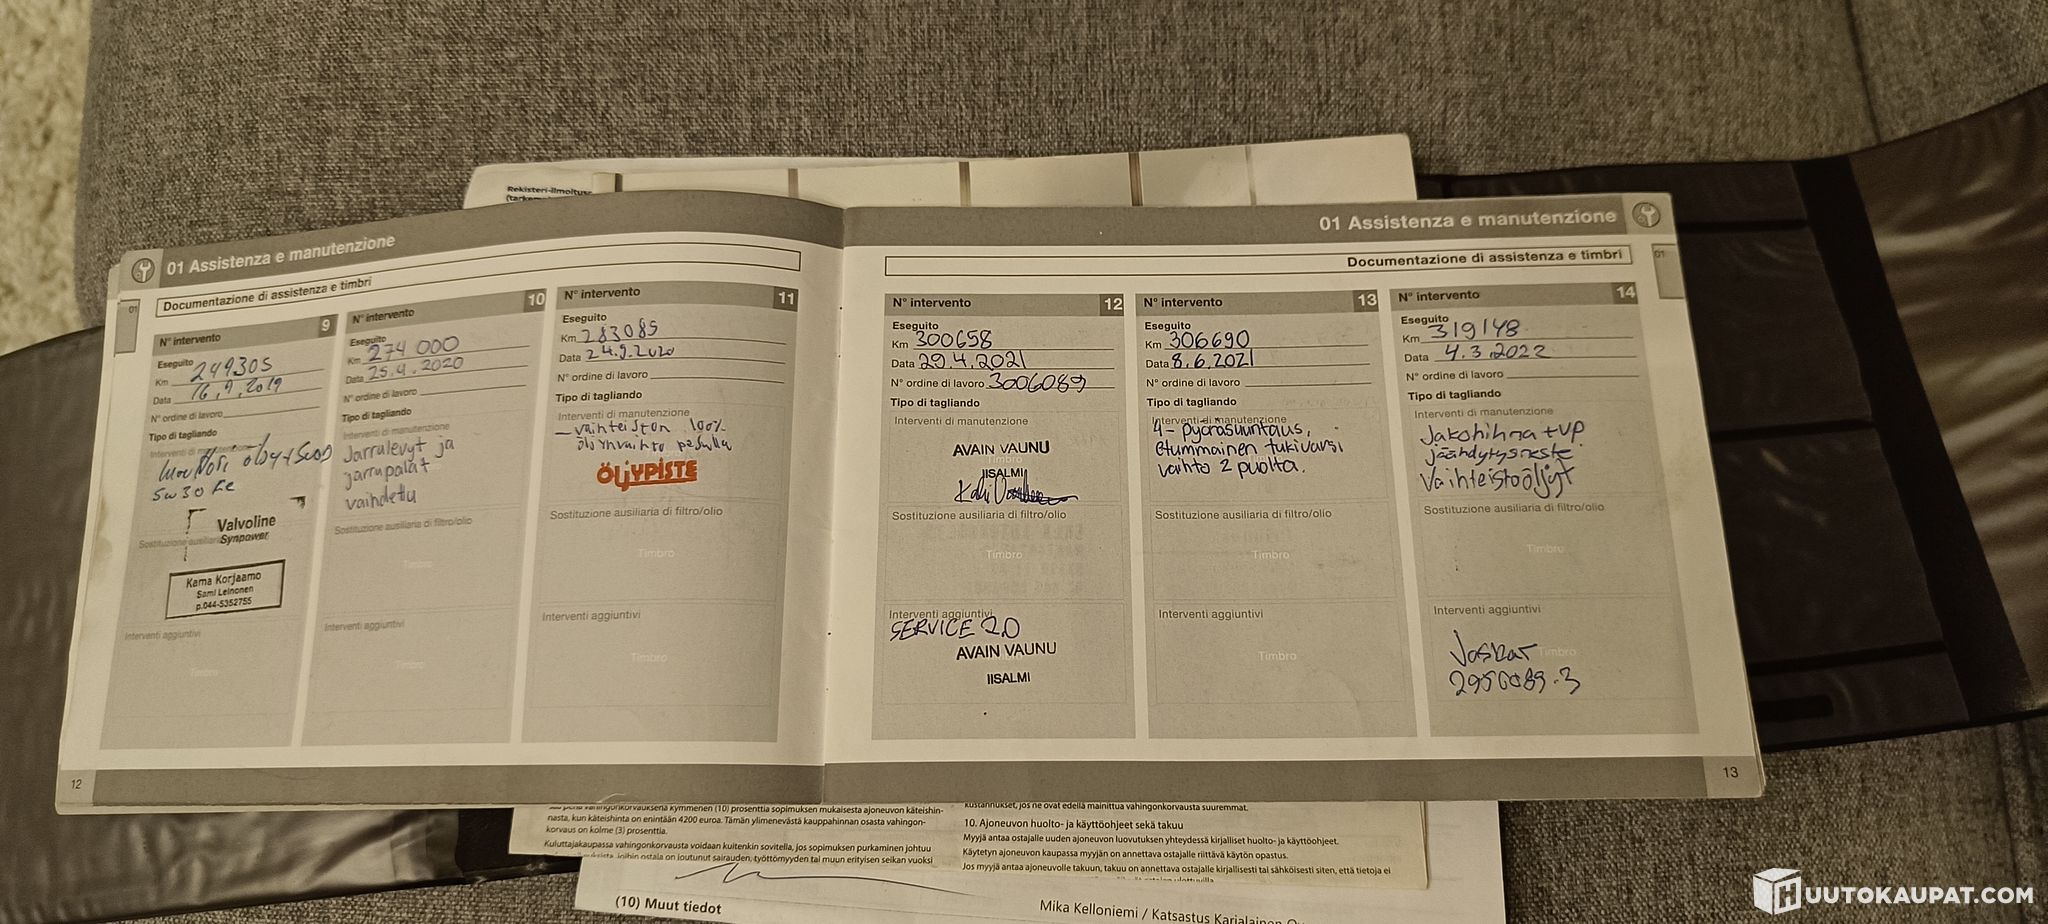 Rekisteri-ilmoitus
01 Assistenza e manutenzione
01
Documentazione di assistenza e timbri
N° intervento 9
Eseguito
Km 249305
Data 16.9.2019
N° ordine di lavoro
Tipo di tagliando
Interventi di manutenzione
5w30
Valvoline
Sostituzione ausiliaria
Synpower
Kama Korjaamo
Sami Leinonen
p.044-5352755
Interventi aggiuntivi
Timbro
N° intervento 10
Eseguito
Km 274 000
Data 25.4.2020
N° ordine di lavoro
Tipo di tagliando
Interventi di manutenzione
Jarrulevyt ja
jarrupalat
vaihdettu
Sostituzione ausiliaria di filtro/olio
Timbro
Interventi aggiuntivi
Timbro
N° intervento 11
Eseguito
Km 283085
Data 24.9.2020
N° ordine di lavoro
Tipo di tagliando
Interventi di manutenzione
- vaihteiston 100%
öljynvaihto pesulla
ÖLJYPISTE
Sostituzione ausiliaria di filtro/olio
Timbro
Interventi aggiuntivi
Timbro
12
01 Assistenza e manutenzione
Documentazione di assistenza e timbri
01
N° intervento 12
Eseguito
Km 300658
Data 29.4.2021
N° ordine di lavoro 3006089
Tipo di tagliando
Interventi di manutenzione
AVAIN VAUNU
IISALMI
Sostituzione ausiliaria di filtro/olio
Timbro
Interventi aggiuntivi
SERVICE 2.0
AVAIN VAUNU
IISALMI
N° intervento 13
Eseguito
Km 306690
Data 8.6.2021
N° ordine di lavoro
Tipo di tagliando
Interventi di manutenzione
4-pyöräsuuntaus,
etummainen tukivarsi
vaihto 2 puolta.
Sostituzione ausiliaria di filtro/olio
Timbro
Interventi aggiuntivi
Timbro
N° intervento 14
Eseguito
Km 319148
Data 4.3.2022
N° ordine di lavoro
Tipo di tagliando
Interventi di manutenzione
Jakohihna + VP
jäähdytysneste
Vaihteistoöljyt
Sostituzione ausiliaria di filtro/olio
Timbro
Interventi aggiuntivi
Timbro
2956089-3
13
vahingonkorvauksena kymmenen (10) prosenttia sopimuksen mukaisesta ajoneuvon käteishin-
nasta, kun käteishinta on enintään 4200 euroa. Tämän ylimenevästä kauppahinnan osasta vahingon-
korvaus on kolme (3) prosenttia.
Kuluttajakaupassa vahingonkorvausta voidaan kuitenkin sovitella, jos sopimuksen purkaminen johtuu
joihin ostaja on joutunut sairauden, työttömyyden tai muun erityisen seikan vuoksi
kustannukset, jos ne ovat edellä mainittua vahingonkorvausta suuremmat.
10. Ajoneuvon huolto- ja käyttöohjeet sekä takuu
Myyjä antaa ostajalle uuden ajoneuvon luovutuksen yhteydessä kirjalliset huolto- ja käyttöohjeet.
Käytetyn ajoneuvon kaupassa myyjän on annettava ostajalle riittävä käytön opastus.
Jos myyjä antaa ajoneuvolle takuun, takuu on annettava ostajalle kirjallisesti tai sähköisesti siten, että tietoja ei
(10) Muut tiedot
Mika Kelloniemi / Katsastus Karjalainen Oy
HUUTOKAUPAT.COM